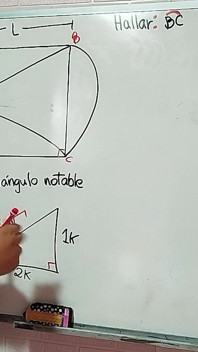 L
Hallar: BC
B
C
ángulo notable
1k
2k